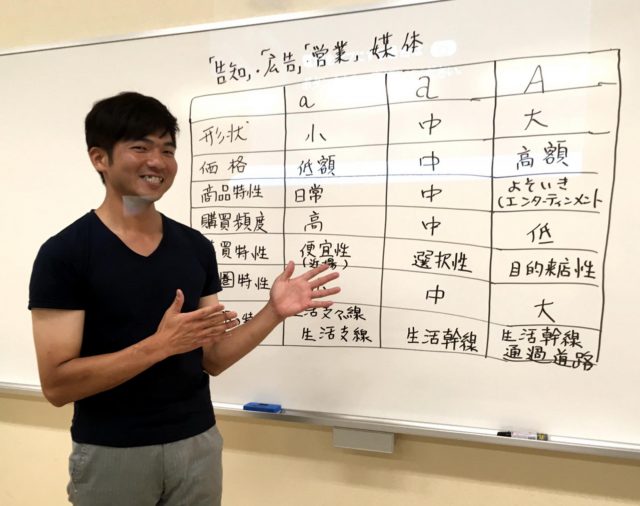 「告知」・「広告」「営業」媒体
a a A
形状 小 中 大
価格 低額 中 高額
商品特性 日常 中 よそいき
(エンターティンメント
購買頻度 高 中 低
買特性 便宜性 選択性 目的来店性
(近場)
圏特性 中 大
生活支線 生活幹線 生活幹線
通過道路